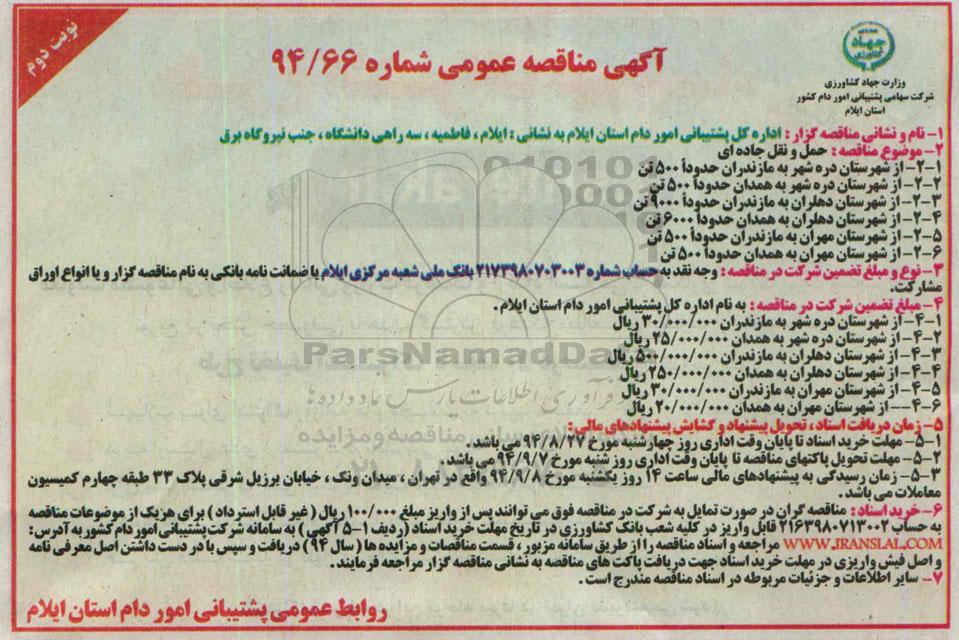 نوبت دوم
آگهی مناقصه عمومی شماره ۹۴/۶۶
جهاد
وزارت جهاد کشاورزی
شرکت سهامی پشتیبانی امور دام کشور
استان ایلام
۱- نام و نشانی مناقصه گزار : اداره کل پشتیبانی امور دام استان ایلام به نشانی : ایلام ، فاطمیه ، سه راهی دانشگاه ، جنب نیروگاه برق
۲- موضوع مناقصه : حمل و نقل جاده ای
۲-۱- از شهرستان دره شهر به مازندران حدوداً ۵۰۰ تن
۲-۲- از شهرستان دره شهر به همدان حدوداً ۵۰۰ تن
۲-۳- از شهرستان دهلران به مازندران حدوداً ۹۰۰۰ تن
۲-۴- از شهرستان دهلران به همدان حدوداً ۶۰۰۰ تن
۲-۵- از شهرستان مهران به مازندران حدوداً ۵۰۰ تن
۲-۶- از شهرستان مهران به همدان حدوداً ۵۰۰ تن
۳- نوع و مبلغ تضمین شرکت در مناقصه : وجه نقد به حساب شماره ۲۱۷۳۹۸۰۷۰۳۰۰۳ بانک ملی شعبه مرکزی ایلام یا ضمانت نامه بانکی به نام مناقصه گزار و یا انواع اوراق
مشارکت.
۴- مبلغ تضمین شرکت در مناقصه : به نام اداره کل پشتیبانی امور دام استان ایلام.
۴-۱- از شهرستان دره شهر به مازندران ۳۰/۰۰۰/۰۰۰ ریال
۴-۲- از شهرستان دره شهر به همدان ۲۵/۰۰۰/۰۰۰ ریال
۴-۳- از شهرستان دهلران به مازندران ۵۰۰/۰۰۰/۰۰۰ ریال
۴-۴- از شهرستان دهلران به همدان ۲۵۰/۰۰۰/۰۰۰ ریال
۴-۵- از شهرستان مهران به مازندران ۳۰/۰۰۰/۰۰۰ ریال
۴-۶-- از شهرستان مهران به همدان ۲۰/۰۰۰/۰۰۰ ریال
۵- زمان دریافت اسناد ، تحویل پیشنهاد و گشایش پیشنهادهای مالی:
۵-۱- مهلت خرید اسناد تا پایان وقت اداری روز چهارشنبه مورخ ۹۴/۸/۲۷ می باشد .
۵-۲- مهلت تحویل پاکتهای مناقصه تا پایان وقت اداری روز شنبه مورخ ۹۴/۹/۷ می باشد .
۵-۳- زمان رسیدگی به پیشنهادهای مالی ساعت ۱۴ روز یکشنبه مورخ ۹۴/۹/۸ واقع در تهران ، میدان ونک ، خیابان برزیل شرقی پلاک ۳۳ طبقه چهارم کمیسیون
معاملات می باشد .
۶- خرید اسناد : مناقصه گران در صورت تمایل به شرکت در مناقصه فوق می توانند پس از واریز مبلغ ۱۰۰/۰۰۰ ریال ( غیر قابل استرداد ) برای هر یک از موضوعات مناقصه
به حساب ۲۱۶۳۹۸۰۷۱۳۰۰۲ قابل واریز در کلیه شعب بانک کشاورزی در تاریخ مهلت خرید اسناد (ردیف ۱-۵ آگهی) به سامانه شرکت پشتیبانی امور دام کشور به آدرس:
WWW.IRANSLAL.COM مراجعه و اسناد مناقصه را از طریق سامانه مزبور ، قسمت مناقصات و مزایده ها ( سال ۹۴ ) دریافت و سپس با در دست داشتن اصل معرفی نامه
و اصل فیش واریزی در مهلت خرید اسناد جهت دریافت پاکت های مناقصه به نشانی مناقصه گزار مراجعه فرمایند .
۷- سایر اطلاعات و جزئیات مربوطه در اسناد مناقصه مندرج است .
روابط عمومی پشتیبانی امور دام استان ایلام
ParsNamadData
فرآوری اطلاعات پارس نماد داده ها